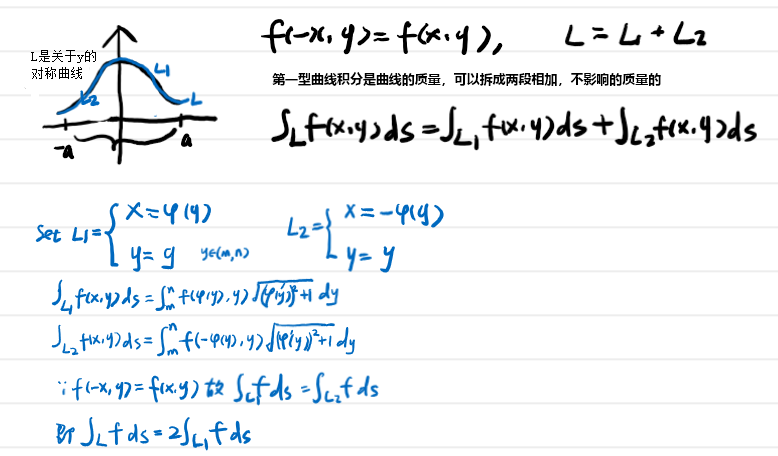 L是关于y的
对称曲线
L1
L2
L
-a
a
f(-x,y)=f(x,y), L=L1+L2
第一型曲线积分是曲线的质量，可以拆成两段相加，不影响的质量的
∫L f(x,y)ds=∫L1 f(x,y)ds+∫L2 f(x,y)ds
Set L1={ x=φ(y) L2={ x=-φ(y)
y=y y∈(m,n) y=y
∫L1 f(x,y)ds=∫m^n f(φ(y),y)√((φ'(y))²+1) dy
∫L2 f(x,y)ds=∫m^n f(-φ(y),y)√((φ'(y))²+1) dy
∵f(-x,y)=f(x,y) 故 ∫L1 f ds=∫L2 f ds
即 ∫L f ds=2∫L1 f ds